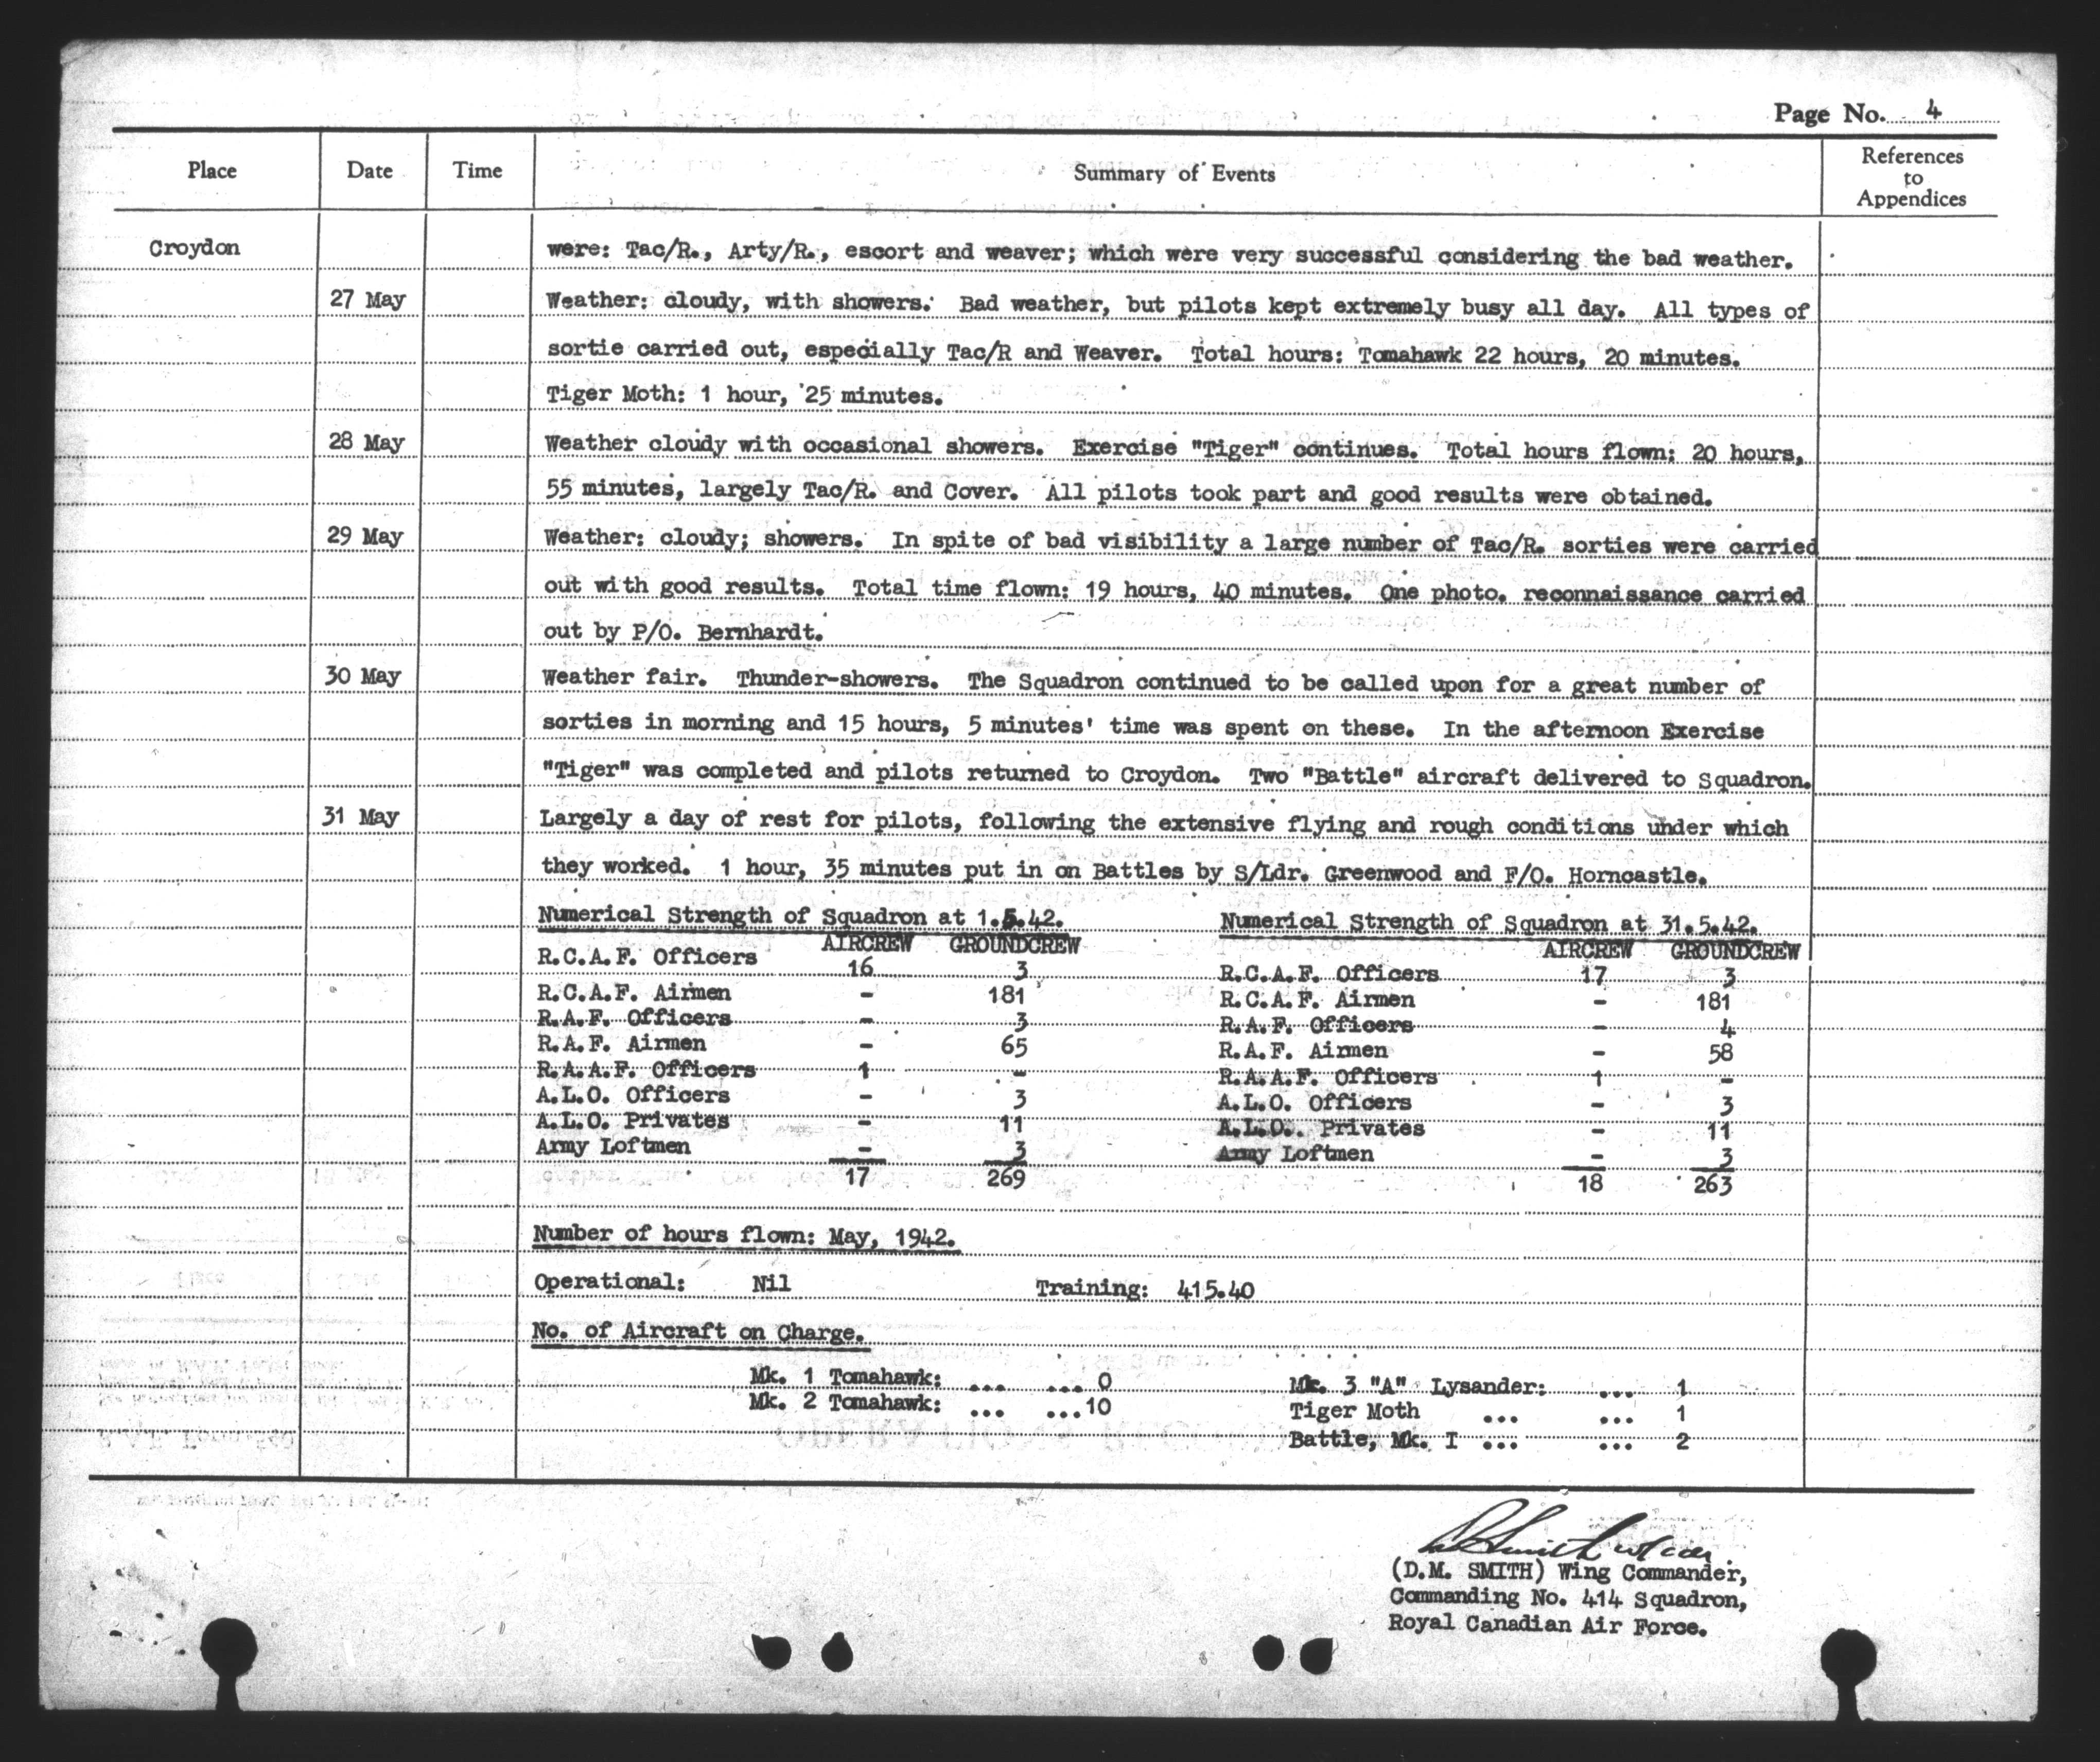 Page No. 4
Place Date Time Summary of Events References to Appendices
Croydon were: Tac/R., Arty/R., escort and weaver; which were very successful considering the bad weather.
27 May Weather: cloudy, with showers. Bad weather, but pilots kept extremely busy all day. All types of
sortie carried out, especially Tac/R and Weaver. Total hours: Tomahawk 22 hours, 20 minutes.
Tiger Moth: 1 hour, 25 minutes.
28 May Weather cloudy with occasional showers. Exercise "Tiger" continues. Total hours flown: 20 hours,
55 minutes, largely Tac/R. and Cover. All pilots took part and good results were obtained.
29 May Weather: cloudy; showers. In spite of bad visibility a large number of Tac/R. sorties were carried
out with good results. Total time flown: 19 hours, 40 minutes. One photo. reconnaissance carried
out by P/O. Bernhardt.
30 May Weather fair. Thunder-showers. The Squadron continued to be called upon for a great number of
sorties in morning and 15 hours, 5 minutes' time was spent on these. In the afternoon Exercise
"Tiger" was completed and pilots returned to Croydon. Two "Battle" aircraft delivered to Squadron.
31 May Largely a day of rest for pilots, following the extensive flying and rough conditions under which
they worked. 1 hour, 35 minutes put in on Battles by S/Ldr. Greenwood and F/O. Horncastle.
Numerical Strength of Squadron at 1.5.42. Numerical Strength of Squadron at 31.5.42.
AIRCREW GROUNDCREW AIRCREW GROUNDCREW
R.C.A.F. Officers 16 3 R.C.A.F. Officers 17 3
R.C.A.F. Airmen - 181 R.C.A.F. Airmen - 181
R.A.F. Officers - 3 R.A.F. Officers - 4
R.A.F. Airmen - 65 R.A.F. Airmen - 58
R.A.A.F. Officers 1 - R.A.A.F. Officers 1 -
A.L.O. Officers - 3 A.L.O. Officers - 3
A.L.O. Privates - 11 A.L.O. Privates - 11
Army Loftmen - 3 Army Loftmen - 3
17 269 18 263
Number of hours flown: May, 1942.
Operational: Nil Training: 415.40
No. of Aircraft on Charge.
Mk. 1 Tomahawk: ... ... 0 Mk. 3 "A" Lysander: ... 1
Mk. 2 Tomahawk: ... ...10 Tiger Moth ... ... 1
Battle, Mk. I ... ... 2
(D.M. SMITH) Wing Commander,
Commanding No. 414 Squadron,
Royal Canadian Air Force.